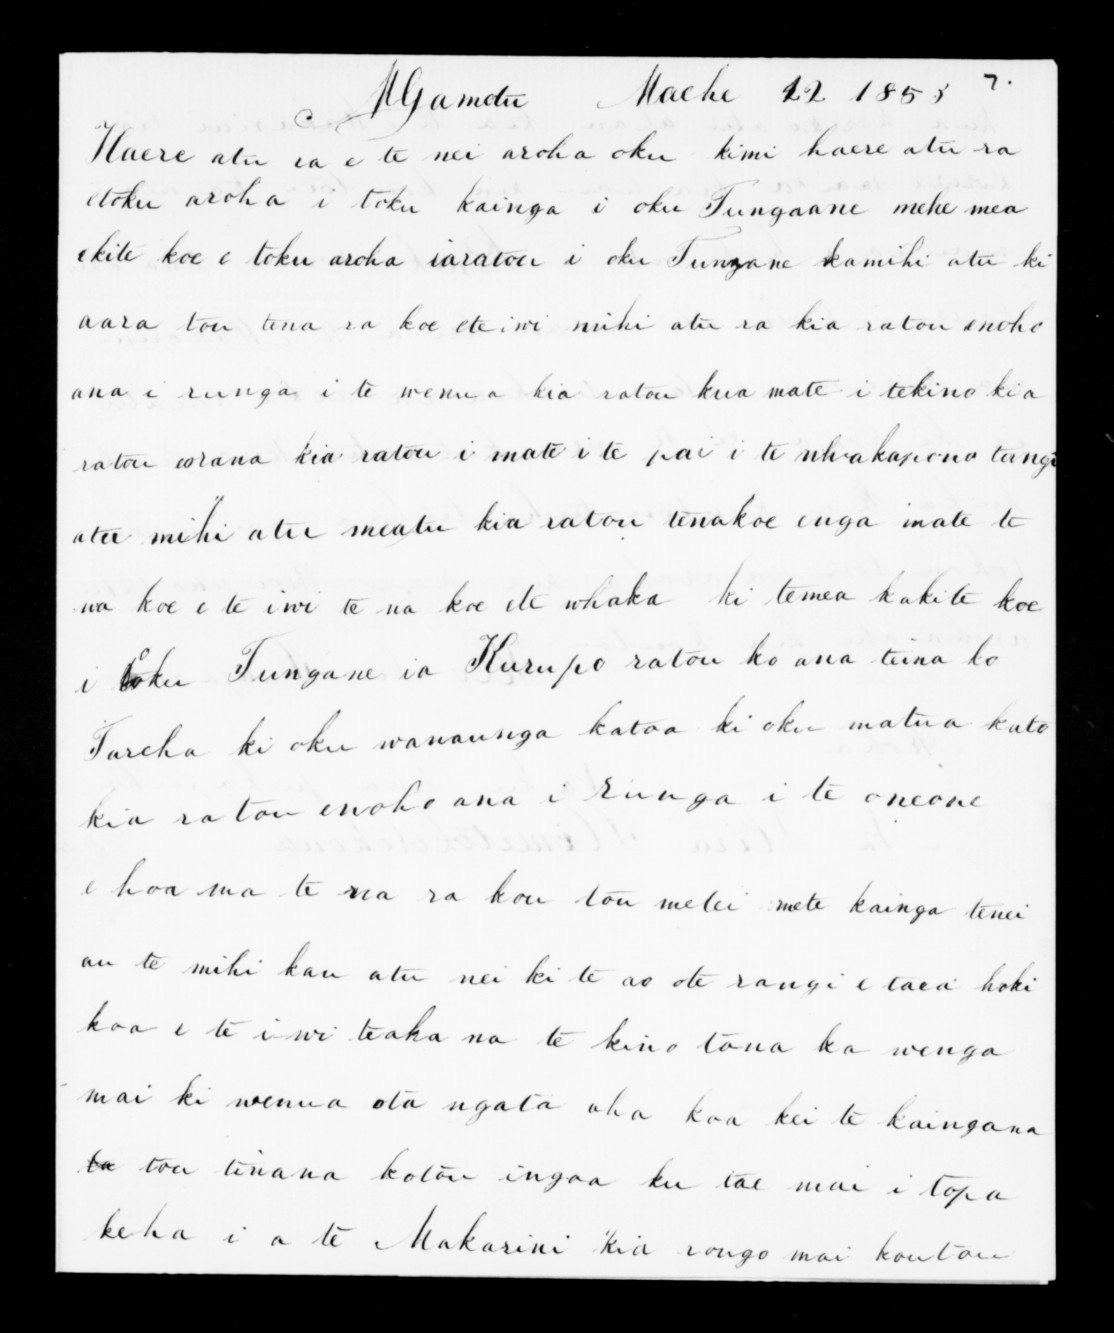 NGamotu Maehe 22 1853 7.
Haere atu ra e te nei aroha oku kimi haere atu ra
etoku aroha i toku kainga i oku Tungaane mehe mea
ekite koe e toku aroha iaratou i oku Tungane kamihi atu ki
aara tou tena ra koe ete iwi mihi atu ra kia ratou enoho
ana i runga i te wenua kia ratou kua mate i tekino kia
ratou eorana kia ratou i mate i te pai i te whakapono tangi
atu mihi atu meatu kia ratou tenakoe enga mate te
na koe e te iwi te na koe ete whaka ki temea kakite koe
i toku Tungane ia Kurupo ratou ko ana teina ko
Tareha ki oku wanaunga katoa ki oku matua kato
kia ratou enoho ana i runga i te oneone
e hoa ma te na ra kou tou metei mete kainga tenei
au te mihi kau atu nei ki te ao ote rangi e taea hoki
koa e te iwi teaka na te kino tana ka wenga
mai ki wenua ota ngata aha koa kei te kaingana
ta tou tinana kotou ingoa ku tae mai i topa
keha i a te Makarini kia rongo mai koutou